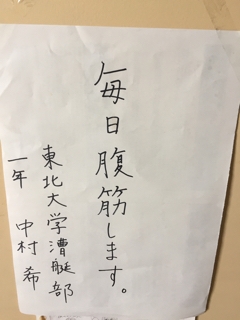 毎日腹筋します。
東北大学漕艇部
一年 中村希